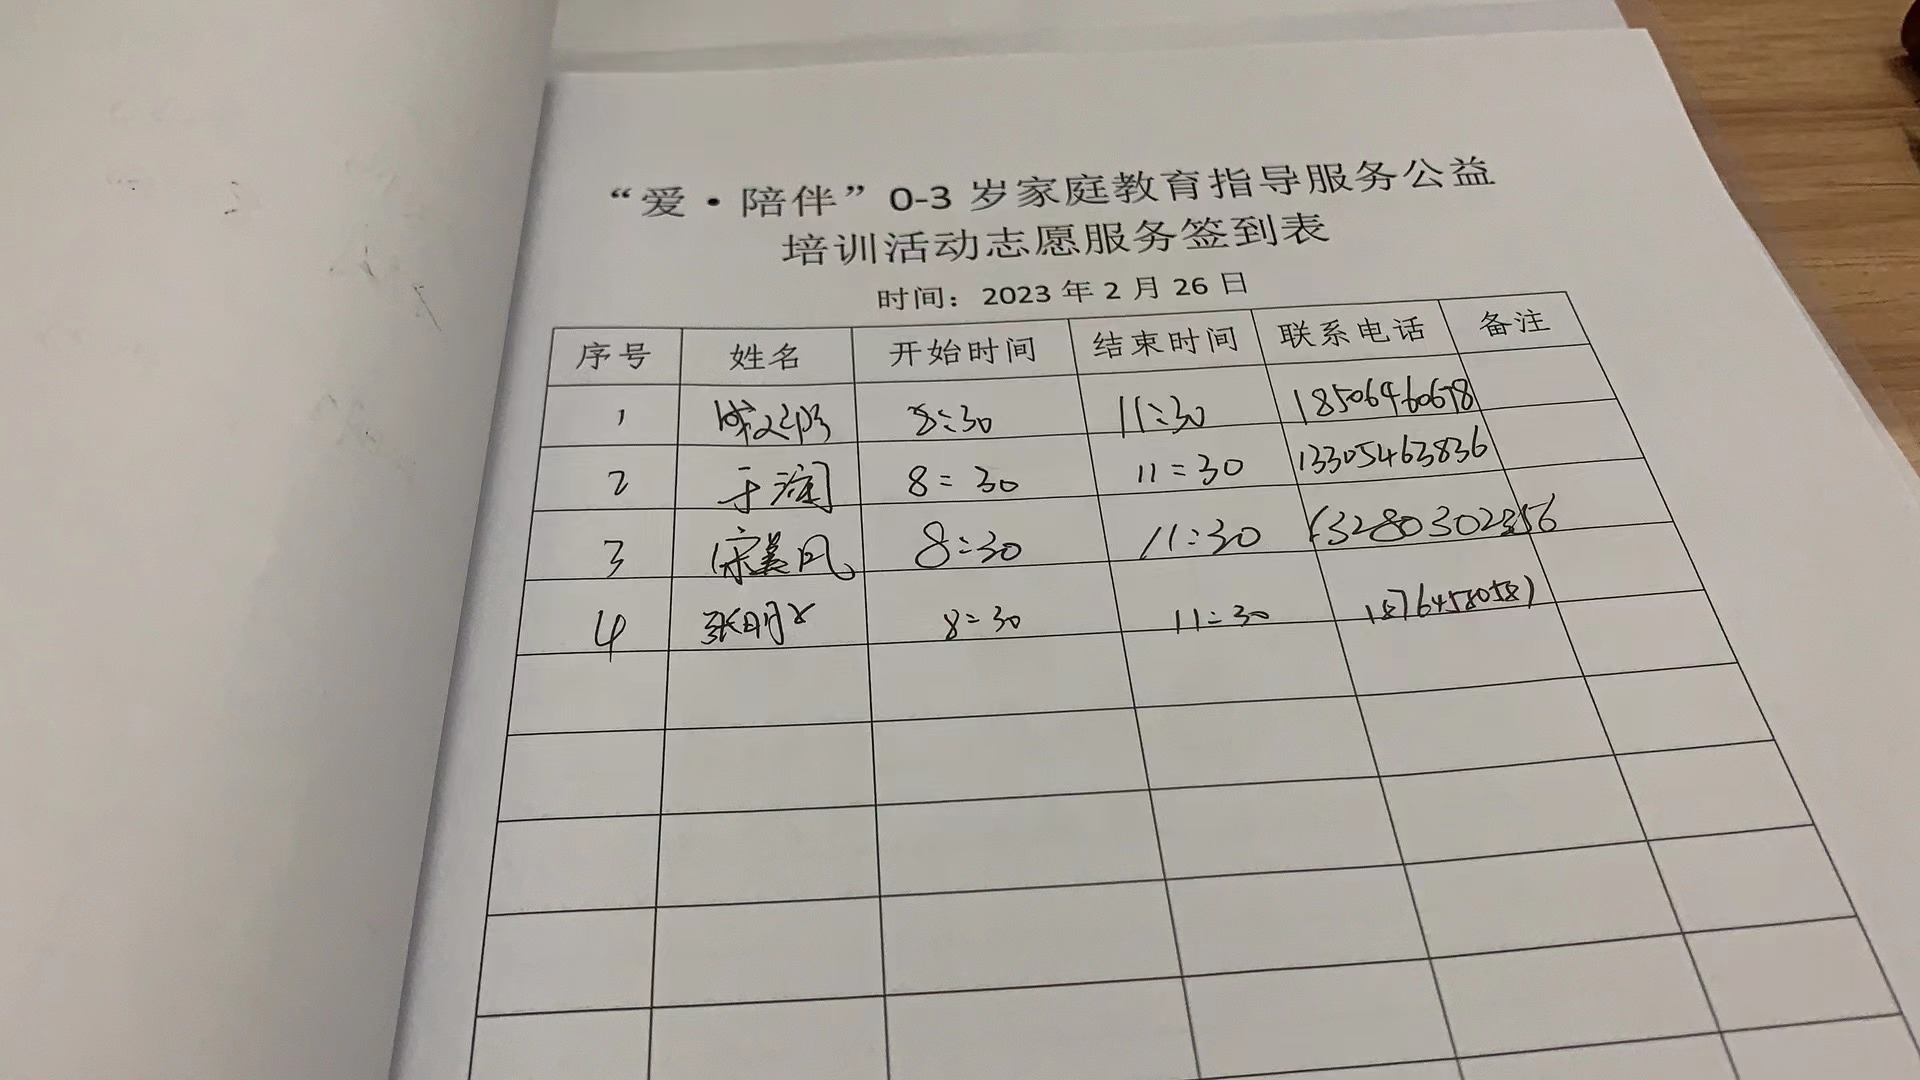 “爱·陪伴”0-3 岁家庭教育指导服务公益
培训活动志愿服务签到表
时间：2023 年 2 月 26 日
序号 姓名 开始时间 结束时间 联系电话 备注
1 8:30 11:30 18506460678
2 于润 8:30 11:30 13305463836
3 宋美凤 8:30 11:30
4 张明 8:30 11:30 18764580581